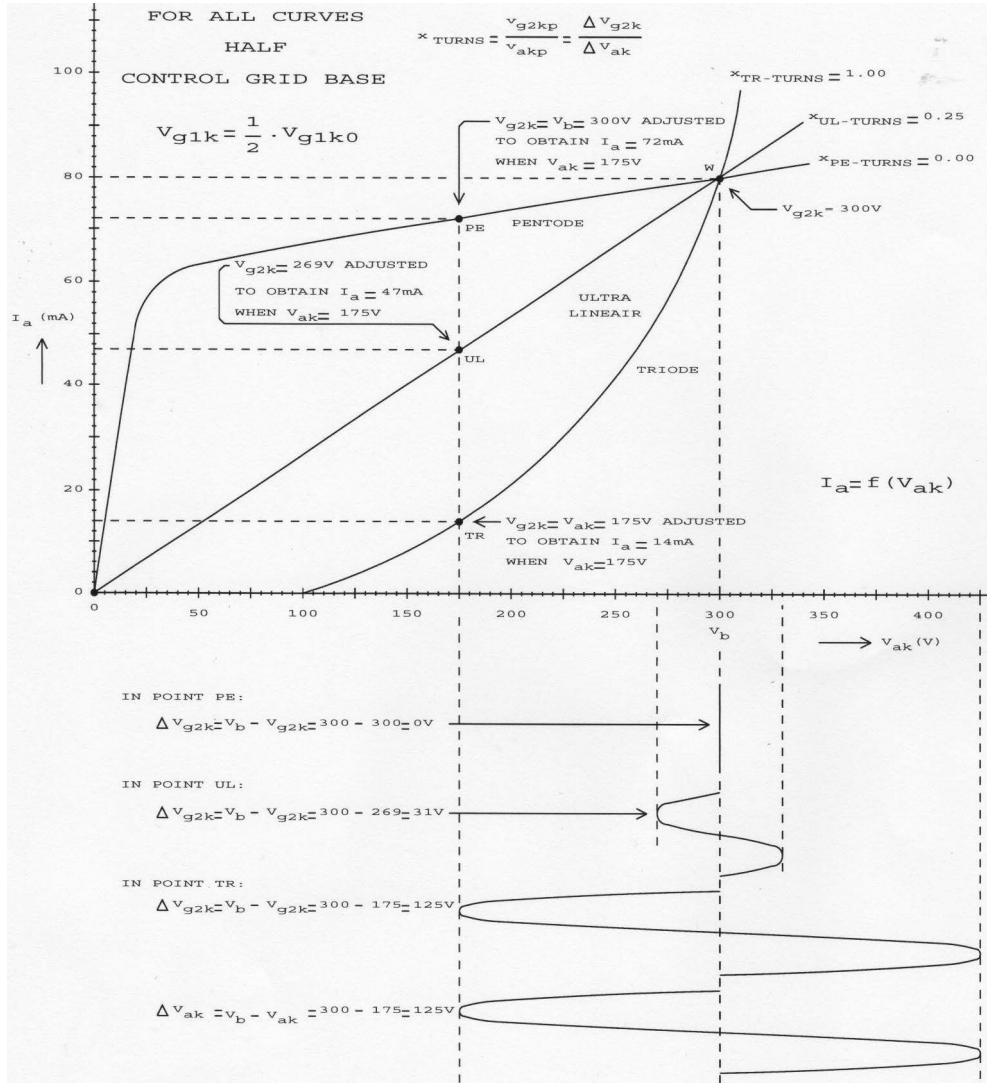 FOR ALL CURVES
HALF
CONTROL GRID BASE
Vg1k = 1/2 · Vg1k0
x TURNS = Vg2kp/Vakp = ΔVg2k/ΔVak
xTR-TURNS = 1.00
xUL-TURNS = 0.25
xPE-TURNS = 0.00
Vg2k = Vb = 300V ADJUSTED
TO OBTAIN Ia = 72mA
WHEN Vak = 175V
W
Vg2k - 300V
PE
PENTODE
Vg2k = 269V ADJUSTED
TO OBTAIN Ia = 47mA
WHEN Vak = 175V
ULTRA
LINEAIR
UL
TRIODE
Ia (mA)
100
80
60
40
20
0
Ia = f (Vak)
Vg2k = Vak = 175V ADJUSTED
TO OBTAIN Ia = 14mA
WHEN Vak = 175V
TR
0 50 100 150 200 250 300 350 400
Vb
Vak (V)
IN POINT PE:
ΔVg2k = Vb - Vg2k = 300 - 300 = 0V
IN POINT UL:
ΔVg2k = Vb - Vg2k = 300 - 269 = 31V
IN POINT TR:
ΔVg2k = Vb - Vg2k = 300 - 175 = 125V
ΔVak = Vb - Vak = 300 - 175 = 125V